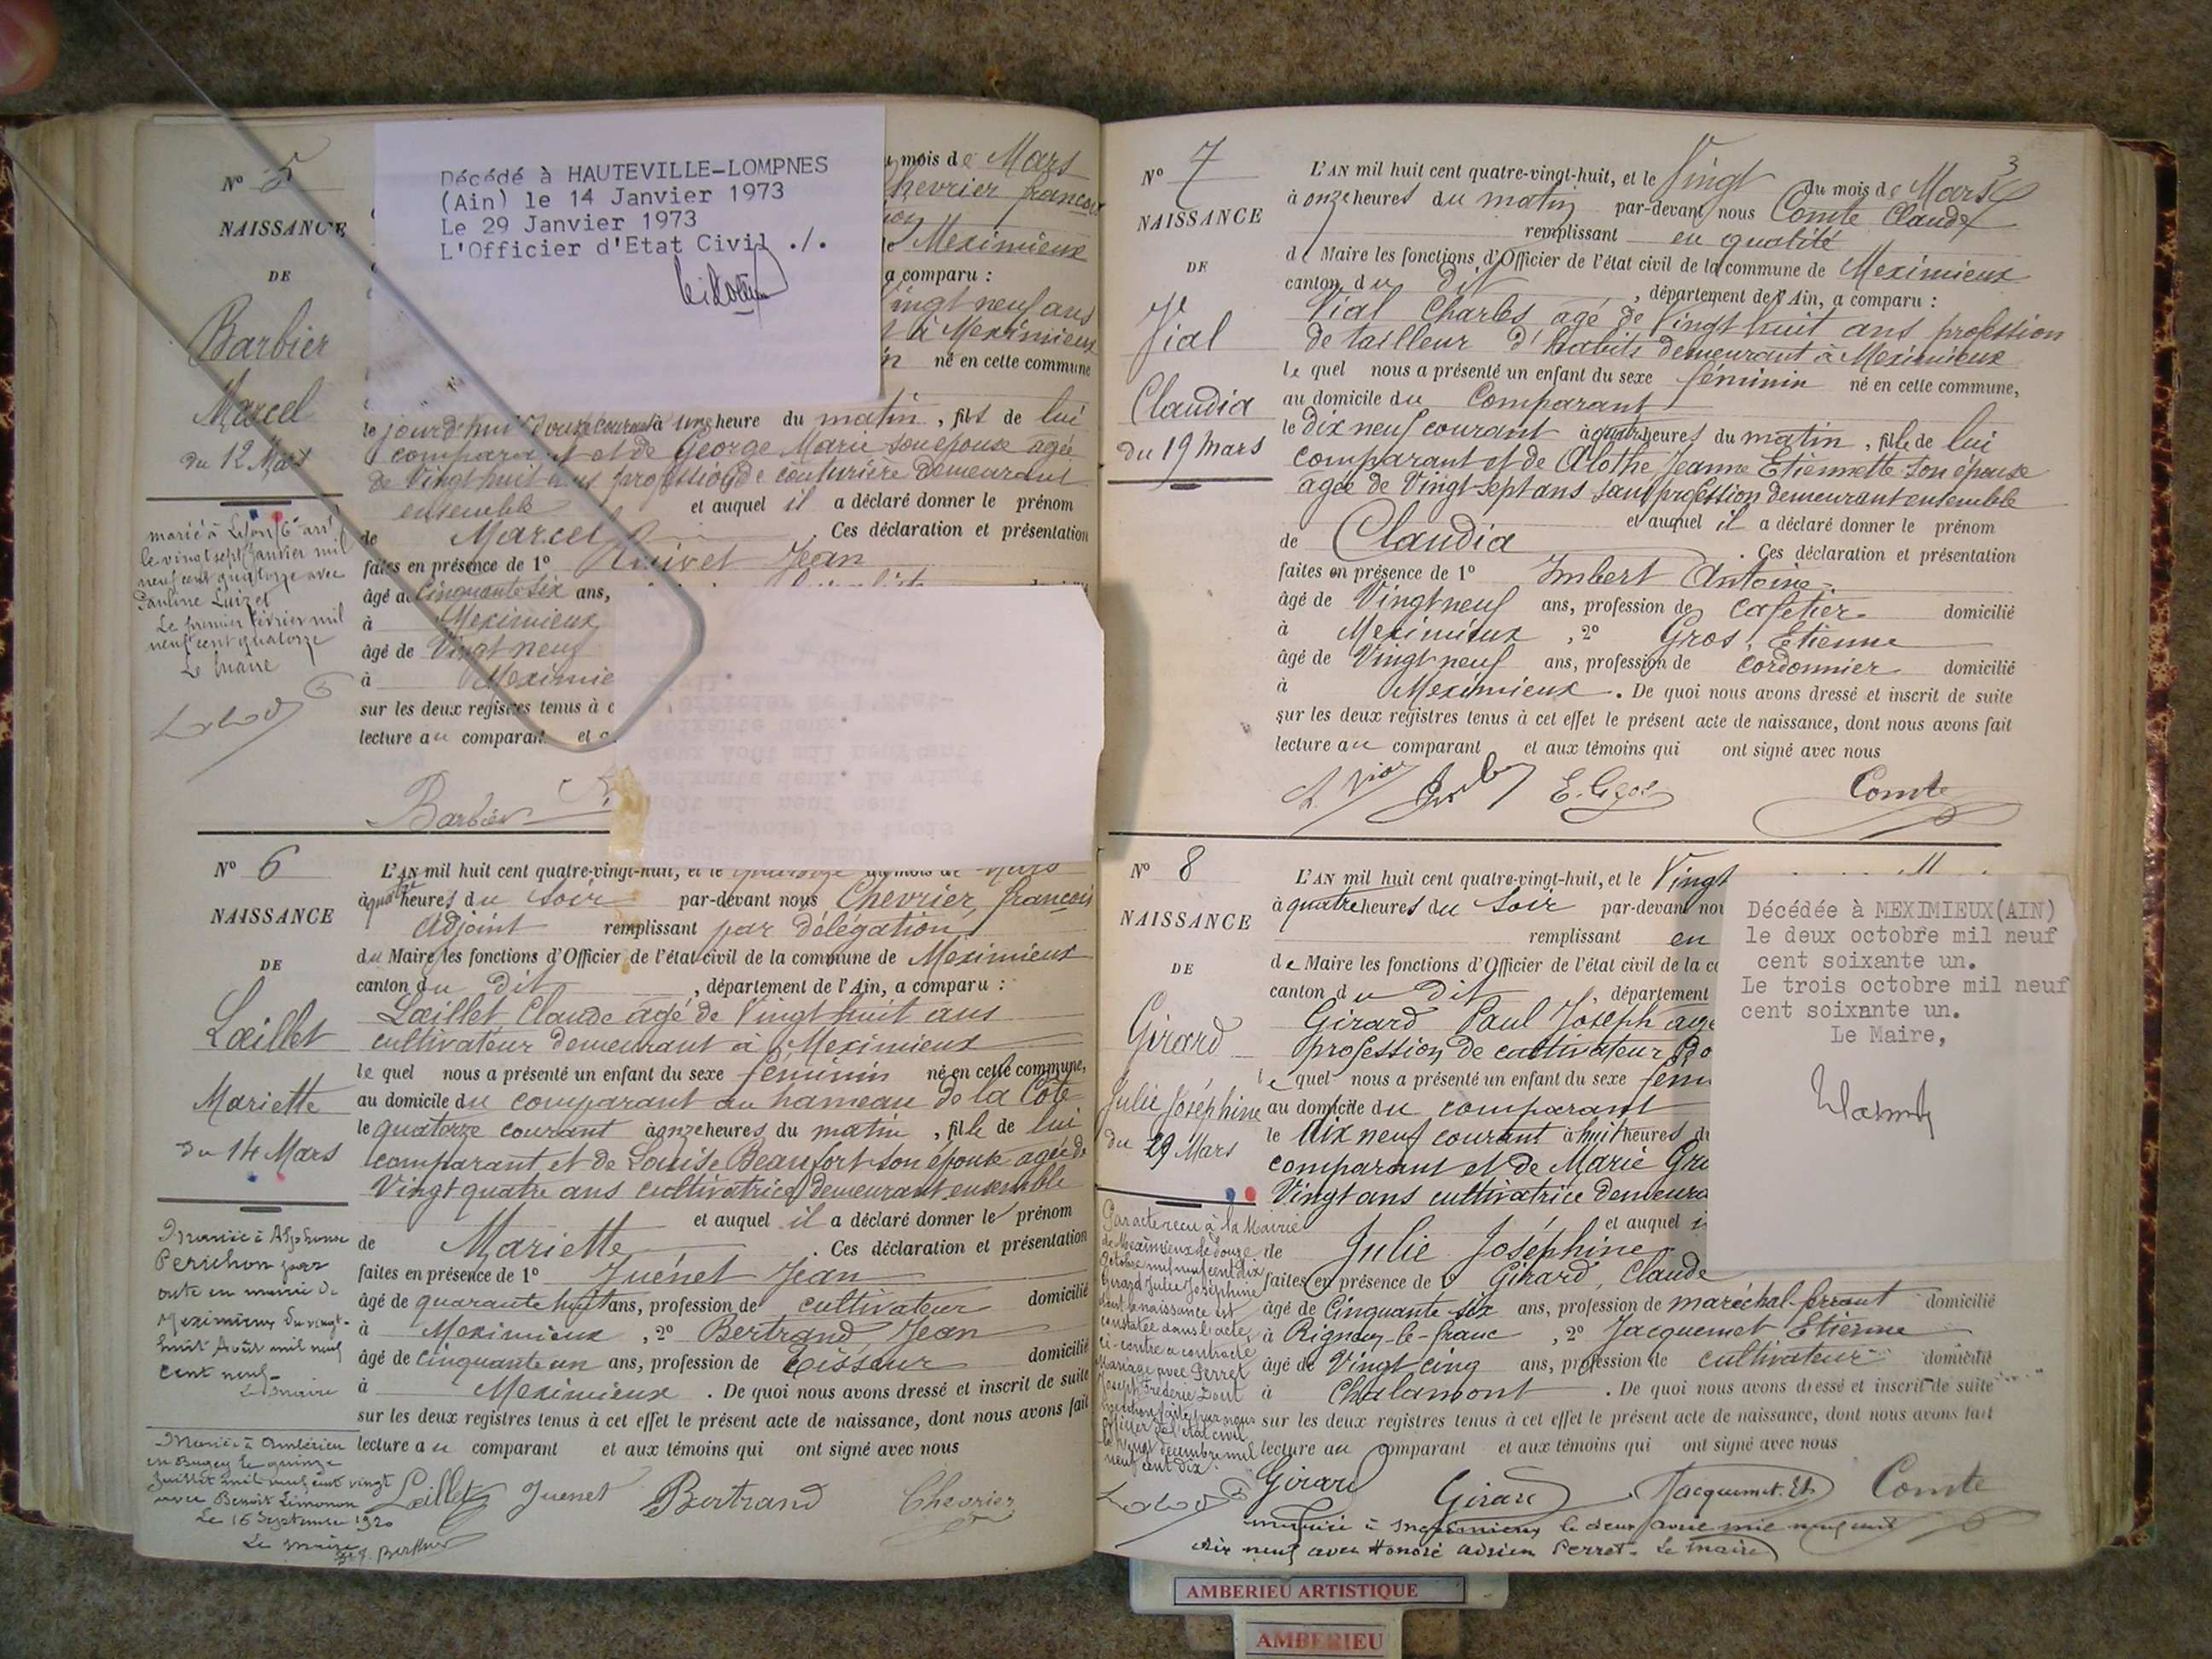 N° 5
NAISSANCE
DE
Barbier
Marcel
du 12 Mars
marié à Lyon 6e arrt
le vingt sept Janvier mil
neuf cent quatorze avec
Pauline Luizet
Le premier février mil
neuf cent quatorze
Le Maire
Décédé à HAUTEVILLE-LOMPNES
(Ain) le 14 Janvier 1973
Le 29 Janvier 1973
L'Officier d'Etat Civil ./.
mois de Mars
Chevrier françois
Meximieux
a comparu :
Vingt neuf ans
à Meximieux
né en cette commune
le jourd'hui douze courant à une heure du matin, fils de lui
comparant et de George Marie son épouse agée
de Vingt huit ans profession de couturière demeurant
ensemble et auquel il a déclaré donner le prénom
de Marcel . Ces déclaration et présentation
faites en présence de 1° Jean
âgé de Cinquante six ans,
à Meximieux
âgé de Vingt neuf
à Meximie
sur les deux registres tenus à c
lecture au comparant et a
Barbier
N° 6
NAISSANCE
DE
Lœillet
Mariette
du 14 Mars
Mariée à Alphonse
Perichon par
acte en mairie de
Meximieux du vingt-
huit Août mil neuf
cent neuf-
Le maire
Mariée à Ambérieu
en Bugey le quinze
Juillet mil neuf cent vingt
avec Benoit Limonon
Le 16 Septembre 1920
Le maire
L'AN mil huit cent quatre-vingt-huit, et le quatorze du mois de Mars
à quatre heures du soir par-devant nous Chevrier françois
Adjoint remplissant par délégation
du Maire les fonctions d'Officier de l'état civil de la commune de Meximieux
canton du dit , département de l'Ain, a comparu :
Lœillet Claude agé de Vingt huit ans
cultivateur demeurant à Meximieux
le quel nous a présenté un enfant du sexe féminin né en cette commune,
au domicile du comparant au hameau de la Côte
le quatorze courant à onze heures du matin , fille de lui
comparant et de Louise Beaufort son épouse agée de
Vingt quatre ans cultivatrice demeurant ensemble
et auquel il a déclaré donner le prénom
de Mariette . Ces déclaration et présentation
faites en présence de 1° Juénet Jean
âgé de quarante huit ans, profession de cultivateur domicilié
à Meximieux , 2° Bertrand Jean
âgé de cinquante un ans, profession de Tisseur domicilié
à Meximieux . De quoi nous avons dressé et inscrit de suite
sur les deux registres tenus à cet effet le présent acte de naissance, dont nous avons fait
lecture au comparant et aux témoins qui ont signé avec nous
Lœillet Juenet Bertrand Chevrier
3
N° 7
NAISSANCE
DE
Vial
Claudia
du 19 Mars
L'AN mil huit cent quatre-vingt-huit, et le Vingt du mois de Mars
à onze heures du matin par-devant nous Comte Claude
remplissant en qualité
de Maire les fonctions d'Officier de l'état civil de la commune de Meximieux
canton du dit , département de l'Ain, a comparu :
Vial Charles agé de Vingt huit ans profession
de tailleur d'habits demeurant à Meximieux
le quel nous a présenté un enfant du sexe féminin né en cette commune,
au domicile du Comparant
le dix neuf courant à quatre heures du matin , fille de lui
comparant et de Alothe Jeanne Etiennette son épouse
agée de Vingt-sept ans sans profession demeurant ensemble
et auquel il a déclaré donner le prénom
de Claudia . Ces déclaration et présentation
faites en présence de 1° Imbert Antoine
âgé de Vingt neuf ans, profession de cafetier domicilié
à Meximieux , 2° Gros, Etienne
âgé de Vingt neuf ans, profession de cordonnier domicilié
à Meximieux . De quoi nous avons dressé et inscrit de suite
sur les deux registres tenus à cet effet le présent acte de naissance, dont nous avons fait
lecture au comparant et aux témoins qui ont signé avec nous
E. Gros Comte
N° 8
NAISSANCE
DE
Girard
Julie Joséphine
du 29 Mars
Par acte reçu à la Mairie
de Meximieux le douze
Octobre mil neuf cent dix
Girard Julie Joséphine
dont la naissance est
constatée dans l'acte
ci-contre a contracté
Mariage avec Perret
Joseph Frédéric Dont
mention faite par nous
Officier de l'état civil
le Vingt décembre mil
neuf cent dix.
L'AN mil huit cent quatre-vingt-huit, et le Vingt
à quatre heures du soir par-devant nou
remplissant en
de Maire les fonctions d'Officier de l'état civil de la co
canton du dit , département
Girard Paul Joseph agé
profession de cultivateur do
le quel nous a présenté un enfant du sexe fémi
au domicile du comparant
le dix neuf courant à huit heures du
comparant et de Marie Gri
Vingt ans cultivatrice demeura
et auquel i
de Julie Joséphine
faites en présence de 1° Girard, Claude
âgé de Cinquante six ans, profession de maréchal-ferrant domicilié
à Rigneux-le-franc , 2° Jacquemet Etienne
âgé de Vingt-cinq ans, profession de cultivateur domicilié
à Chalamont . De quoi nous avons dressé et inscrit de suite
sur les deux registres tenus à cet effet le présent acte de naissance, dont nous avons fait
lecture au comparant et aux témoins qui ont signé avec nous
Girard Girard Jacquemet. Et. Comte
mariée à Meximieux le deux avril mil neuf cent
dix neuf avec Honoré Adrien Perret - Le Maire
Décédée à MEXIMIEUX(AIN)
le deux octobre mil neuf
cent soixante un.
Le trois octobre mil neuf
cent soixante un.
Le Maire,
AMBERIEU ARTISTIQUE
AMBERIEU